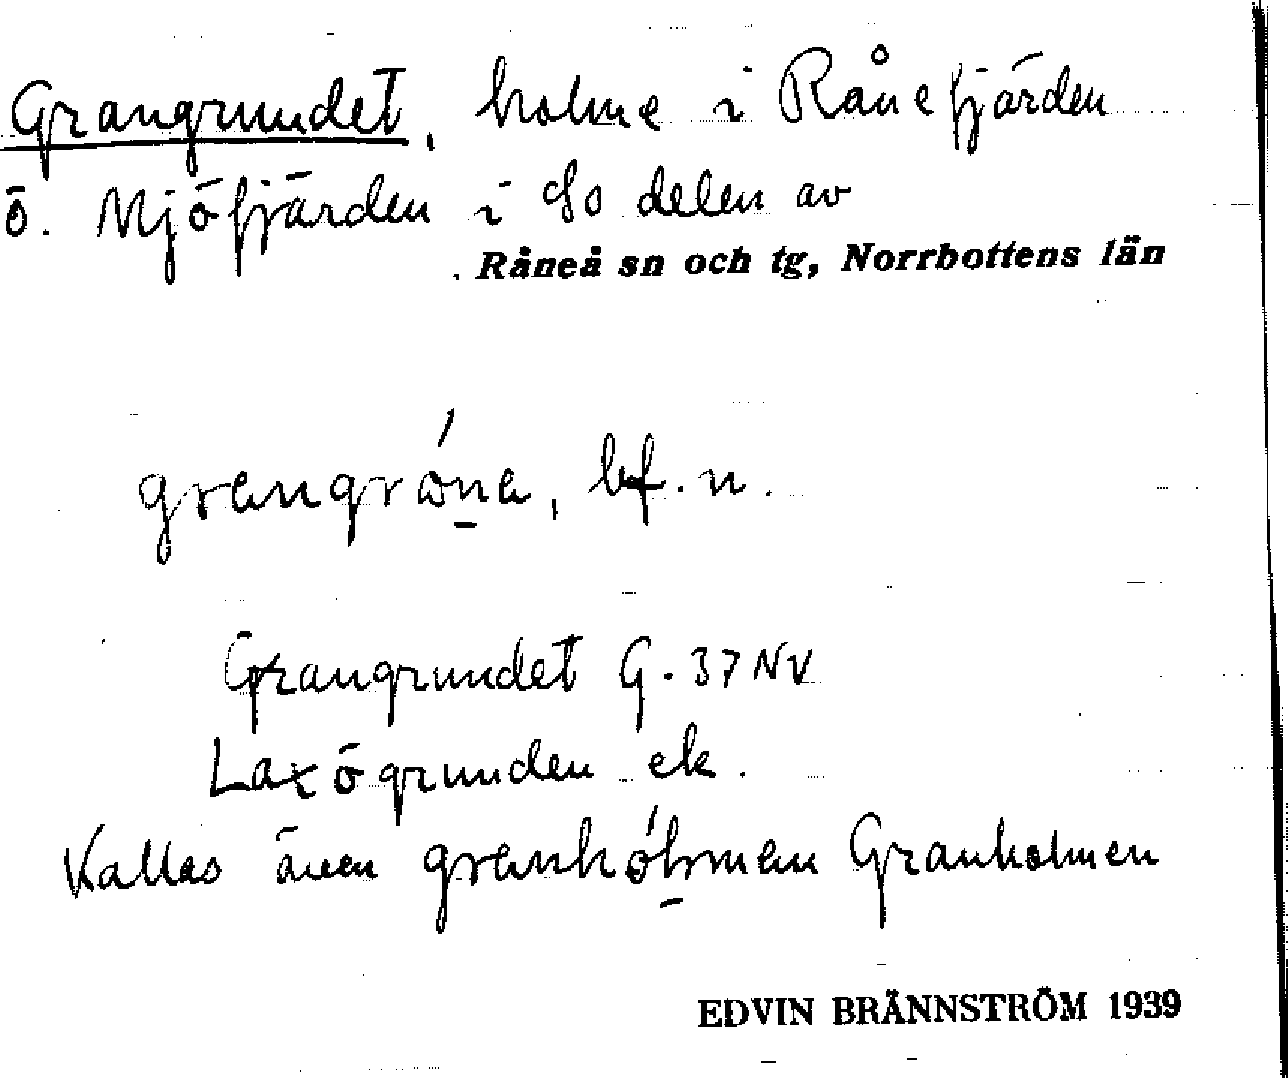 Grangrundet, holme i Rånefjärden
ö. Mjöfjärden i So delen av
Råneå sn och tg, Norrbottens län
grangróna, bf. n.
Grangrundet G. 37 NV
Laxögrunden ek.
Kallas även granhólmen Granholmen
EDVIN BRÄNNSTRÖM 1939